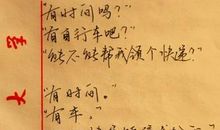 大学
"有时间吗?"
"有自行车吧?"
"能不能帮我领个快递?"
"有时间。"
"有车。"